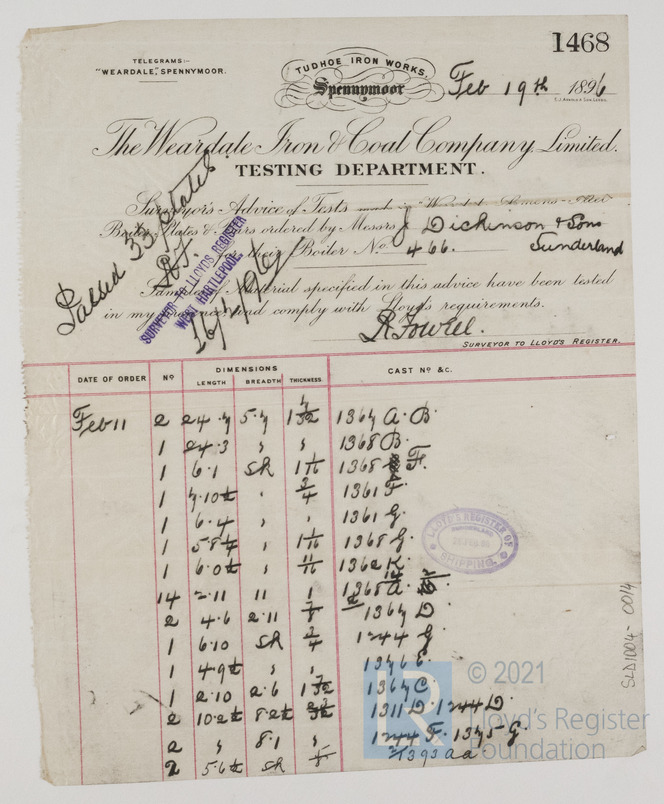 1468
TELEGRAMS:-
"WEARDALE", SPENNYMOOR.
TUDHOE IRON WORKS,
Spennymoor
Feb 19th 1896
The Weardale Iron & Coal Company, Limited.
TESTING DEPARTMENT.
Surveyor's Advice of Tests made in
Boiler Plates & Bars ordered by Messrs J Dickinson & Sons
for their Boiler No. 466. Sunderland
Passed 33 plates
SURVEYOR TO LLOYDS REGISTER
WEST HARTLEPOOL
Samples of Material specified in this advice have been tested
in my presence and comply with Lloyd's requirements.
R Fowell.
SURVEYOR TO LLOYD'S REGISTER.
DATE OF ORDER No DIMENSIONS CAST No &c.
LENGTH BREADTH THICKNESS
Feb 11 2 24.7 5.7 1 7/32 1367 A. B.
1 24.3 " " 1368 B.
1 6.1 Sk 1 1/16 1368 F.
1 7.10½ " 3/4 1361 F.
1 6.4 " " 1361 G.
1 5.8¼ " 1 1/16 1368 G.
1 6.0½ " 11/16 1362 K.
14 2.11 11 1 1365 A.
2 4.6 2.11 7/8 1367 D.
1 6.10 Sk 3/4 1244 G
1 4.9½ " " 1376 E.
1 2.10 2.6 1 7/32 1367 C
2 10.2½ 8.2½ 1311 D. 1244 D.
2 " 8.1 " 1244 F. 1375 G.
2 5.6½ Sk 1393 aa
LLOYD'S REGISTER OF
SHIPPING.
SLD1004-0014
© 2021
LR
Lloyd's Register
Foundation